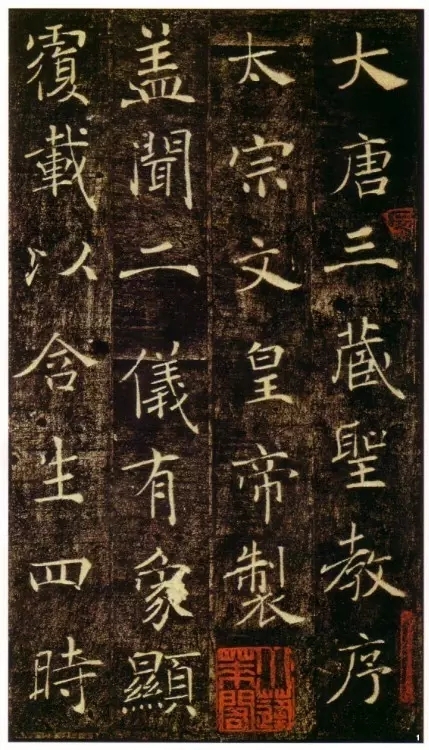 大唐三藏聖教序
太宗文皇帝製
盖聞二儀有象顯
覆載以含生四時
1